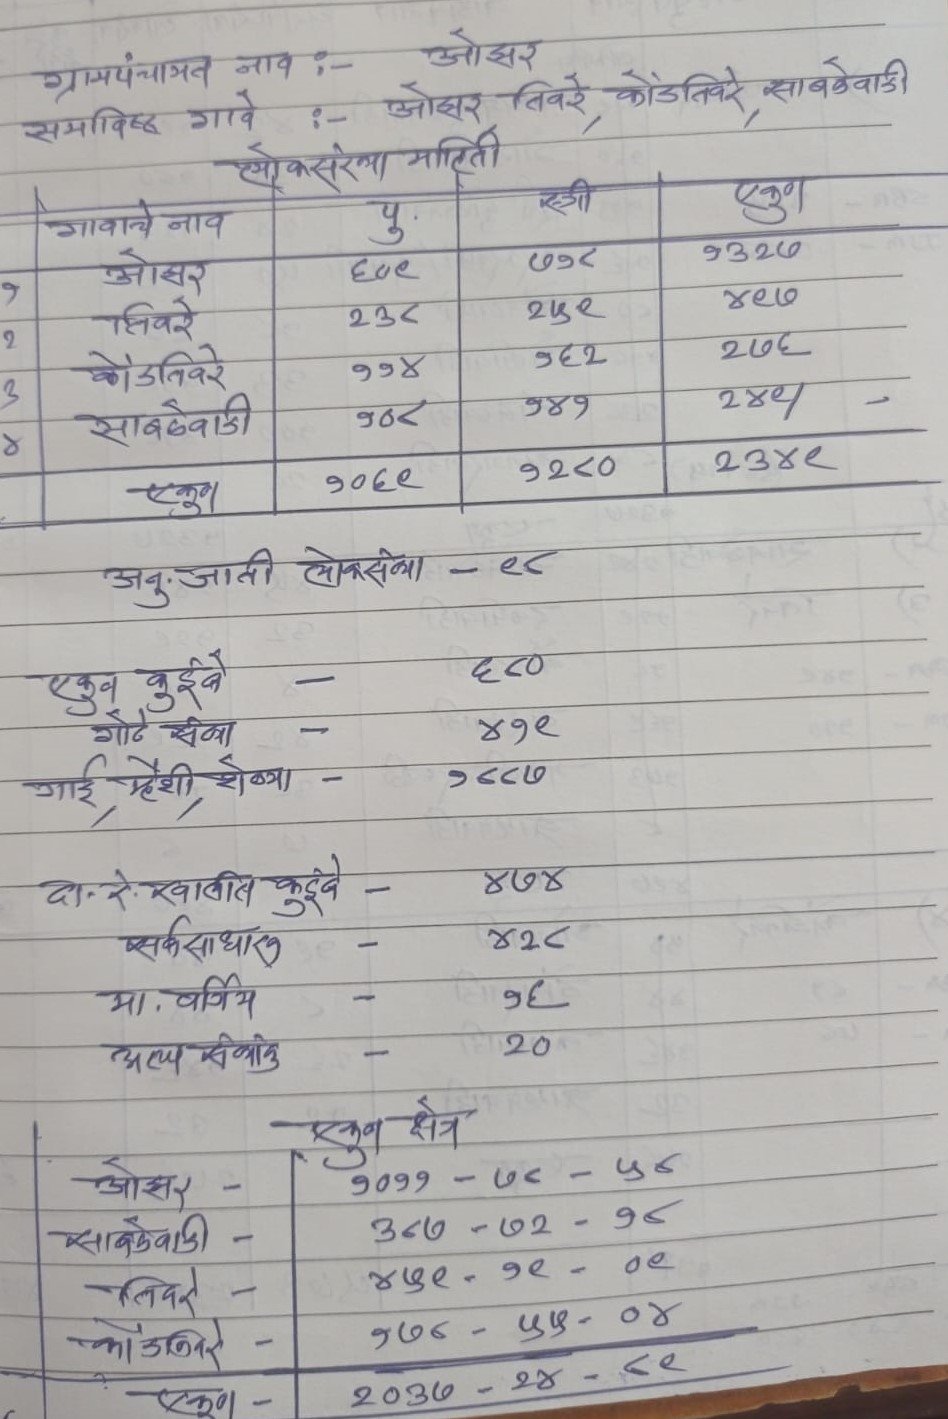 ग्रामपंचायत नाव :- ओझर
समाविष्ठ गावे :- ओझर, तिवरे, कोंडतिवरे, साबळेवाडी
लोकसंख्या माहिती
गावाचे नाव पु. स्त्री एकुण
१ ओझर ६०९ ७१८ १३२७
२ तिवरे २३८ २५९ ४९७
३ कोंडतिवरे ११४ १६२ २७६
४ साबळेवाडी १०८ १४१ २४९ -
एकुण १०६९ १२८० २३४९
अनु. जाती लोकसंख्या - ९८
एकुण कुटुंबे - ६८०
गोठे संख्या - ४१९
गाई, म्हैशी, शेळ्या - १८८७
दा. रे. खालील कुटुंबे - ४७४
सर्वसाधारण - ४२८
मा. वर्गिय - १६
अल्प संख्यांक - २०
एकुण क्षेत्र
ओझर - १०११ - ७८ - ५८
साबळेवाडी - ३८७ - ७२ - १८
तिवरे - ४५९ - १९ - ०९
कोंडतिवरे - १७८ - ५५ - ०४
एकुण - २०३७ - २४ - ८९